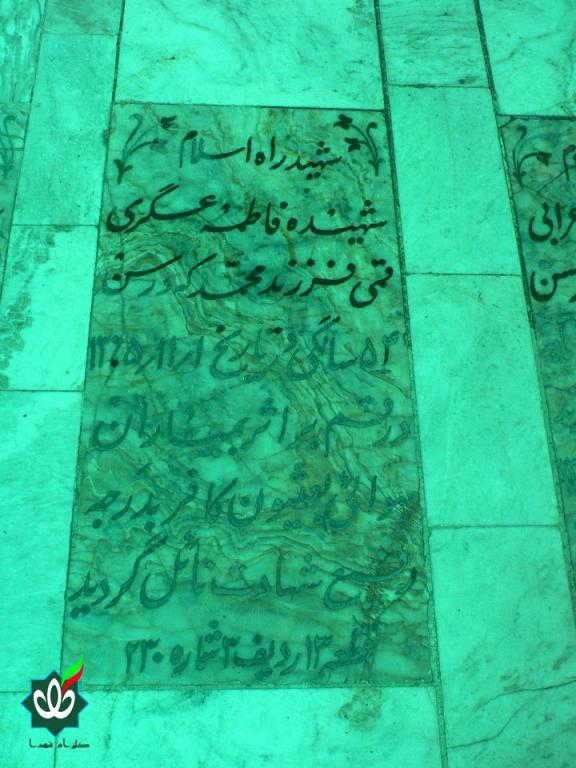 شهید راه اسلام
شهیده فاطمه عسگری
قمی فرزند محمد که در سن
۵۴ سالگی در تاریخ ۱۳۶۵/۱۱/۱
در قم بر اثر بمباران
هوائی بعثیون کافر بدرجه
رفیع شهادت نائل گردید
قطعه ۱۳ ردیف ۳ شماره ۲۳۰
گلزار شهدا